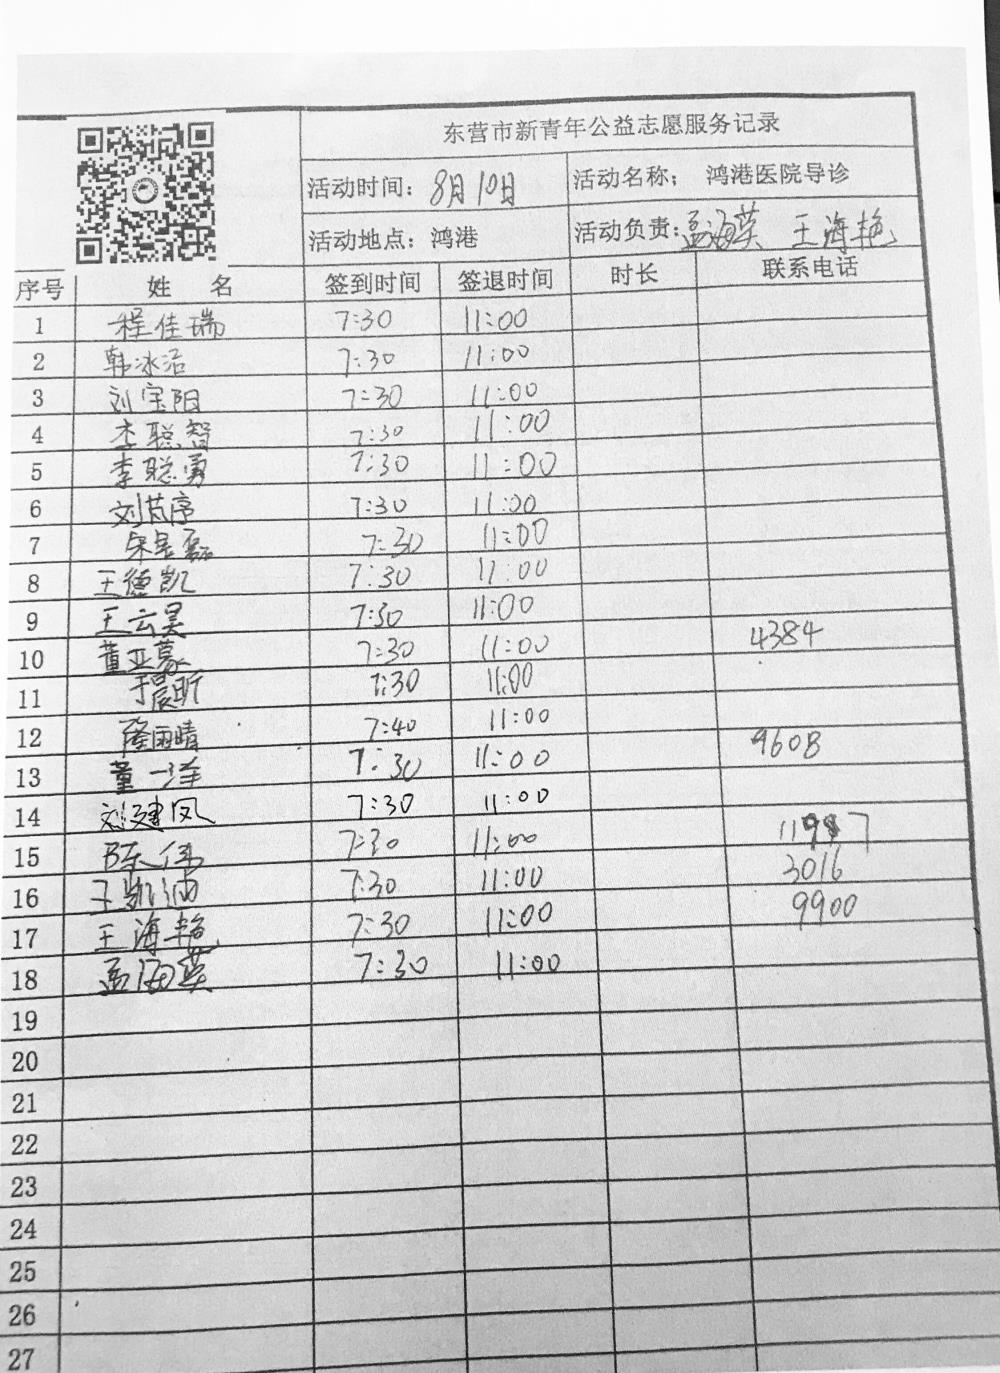 东营市新青年公益志愿服务记录
活动时间：8月10日 活动名称； 鸿港医院导诊
活动地点：鸿港 活动负责:孟海英 王海艳
序号 姓 名 签到时间 签退时间 时长 联系电话
1 程佳瑞 7:30 11:00
2 韩冰洁 7:30 11:00
3 刘宝阳 7:30 11:00
4 李聪智 7:30 11:00
5 李聪勇 7:30 11:00
6 刘芃序 7:30 11:00
7 宋昱磊 7:30 11:00
8 王德凯 7:30 11:00
9 王云昊 7:30 11:00
10 董亚慕 7:30 11:00 4384
11 于晨昕 7:30 11:00
12 隆雨晴 7:40 11:00
13 董一泽 7:30 11:00 9608
14 刘建凤 7:30 11:00
15 陈伟 7:30 11:00
16 王凯迪 7:30 11:00 3016
17 王海艳 7:30 11:00 9900
18 孟海英 7:30 11:00
19
20
21
22
23
24
25
26
27